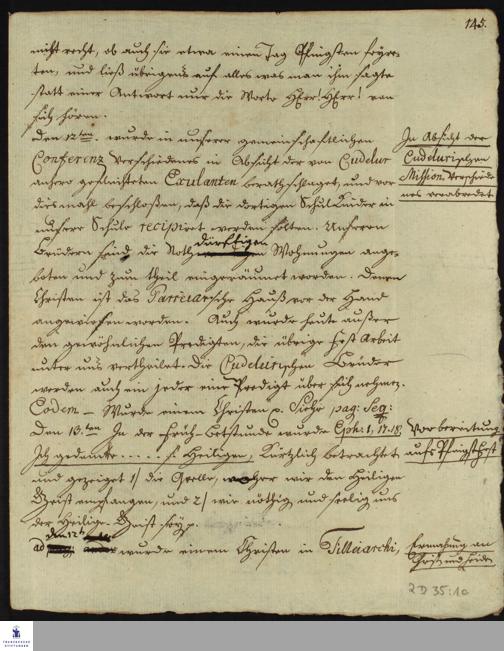 145.
nicht recht, ob auch sie etwa einen Tag Pfingsten feyre-
ten, und ließ übrigens auf alles was man ihm sagte
statt einer Antwort nur die Worte HErr! HErr! von
sich hören.
Den 12ten. wurde in unserer gemeinschaftlichen
Conferenz Verschiedenes in Absicht der von Cudelur
anhero geflüchteten Exulanten berathschlaget, und vor
diesmahl beschloßen, daß die dortigen Schul Kinder in
unsere Schule recipiret werden solten. Unseren
Brüdern sind die Noth dürftigen Wohnungen ange-
boten und zum theil eingeräumet worden. Denen
Christen ist das Parreiarsche Hauß vor der Hand
angewiesen worden. Auch wurde heute außer
den gewöhnlichen Predigten, die übrige Fest Arbeit
unter uns vertheilet. Die Cudelurischen Brüder
werden auch ein jeder eine Predigt über sich nehmen.
Eodem – Wurde einem Christen p. Siehe pag: Seq:
Den 13.ten In der Früh-Betstunde wurde Eph: 1, 17-18.
Ich gedencke . . . . . s. Heiligen, Kürtzlich betrachtet
und gezeiget 1/ die Quelle, woher wir den Heiligen
Geist empfangen, und 2/ wie nöthig und seelig uns
der Heilige Geist sey p.
den 12t.
ad wurde einem Christen in Tilleiarchi,
In Absicht der
Cudelurischen
Mission Verschiede-
nes verabredet
Vorbereitung
aufs Pfingstfest
Ermahnung an
Christ. und Heiden
2 D 35:10
FRANCKESCHE
STIFTUNGEN